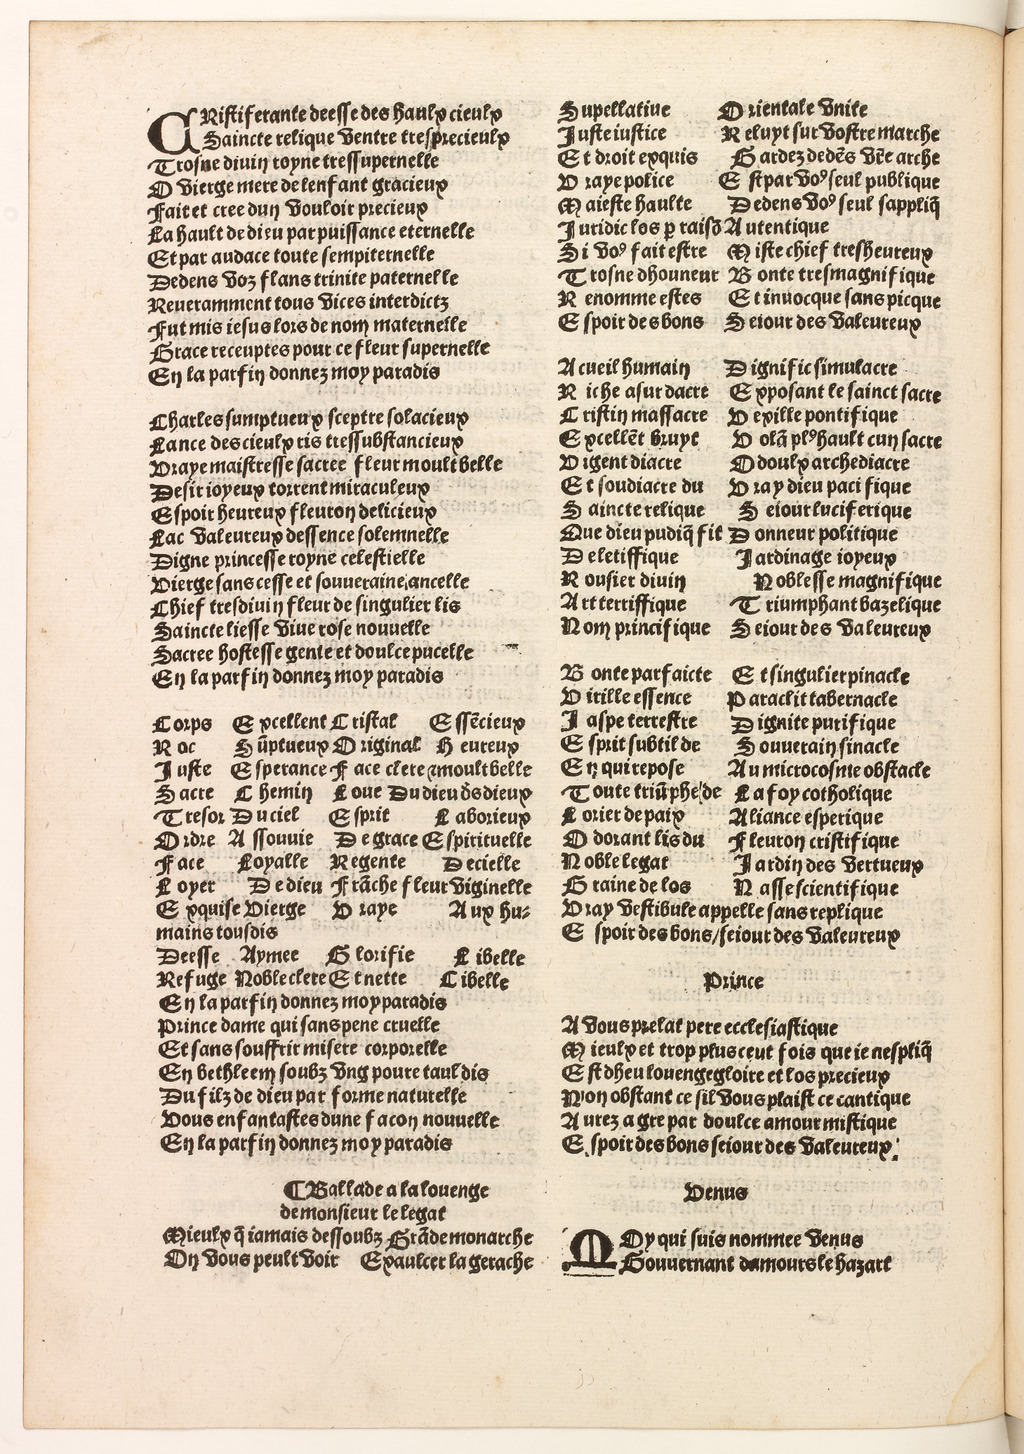 CRistiferante deesse des haulx cieulx
Saincte relique ventre tresprecieulx
Trosne divin royne tressupernelle
O vierge mere de lenfant gracieux
Fait et cree dun vouloir precieux
La hault de dieu par puissance eternelle
Et par audace toute sempiternelle
Dedens voz flans trinite paternelle
Reveramment tous vices interdictz
Fut mis iesus lors de nom maternelle
Grace receuptes pour ce fleur supernelle
En la parfin donnez moy paradis
Charles sumptueux sceptre solacieux
Lance des cieulx tis tressubstancieux
Vraye maistresse sacree fleur moult belle
Desir ioyeux torrent miraculeux
Espoir heureux fleuron delicieux
Lac valeureux dessence solemnelle
Digne princesse royne celestielle
Vierge sans cesse et souveraine ancelle
Chief tresdivin fleur de singulier lis
Saincte liesse vive rose nouuelle
Sacree hostesse gente et doulce pucelle
En la parfin donnez moy paradis
Corps Excellent Cristal Essēcieux
Roc Sūptueux Original Heureux
Juste Esperance Face clere ⁊ moult belle
Sacre Chemin Loue Du dieu ds dieux
Tresor Du ciel Esprit Laborieux
Ordre Assouuie De grace Espirituelle
Face Loyalle Regente Decielle
Loyer De dieu Frāche fleur viginelle
Exquise Vierge Vraye Aux hu-
mains tousdis
Deesse Aymee Glorifie Libelle
Refuge Noble clere Et nette Cibelle
En la parfin donnez moy paradis
Prince dame qui sans pene cruelle
Et sans souffrir misere corporelle
En bethleem soubz vng poure taul dis
Du filz de dieu par forme naturelle
Vous enfantastes dune facon nouuelle
En la parfin donnez moy paradis
¶ Ballade a la louenge
de monsieur le legat
Mieulx q̄ iamais dessoubz Grāde monarche
On vous peult voir Exaulcer la gerache
Supellative Orientale vnite
Juste iustice Reluyt sur vostre marche
Et droit exquis Gardez dedēs vr̄e arche
Vraye police Est par voꝰ seul publique
Maieste haulte Dedens voꝰ seul sappliq̄
Juridic los p raisō Autentique
Si voꝰ fait estre Miste chief tresheureux
Trosne dhonneur Bonte tresmagnifique
Renomme estes Et invocque sans picque
Espoir des bons Seiour des valeureux
Acueil humain Dignific simulacre
Riche asur dacre Exposant le sainct sacre
Cristin massacre Vexille pontifique
Excellēt bruyt Volā plꝰ hault cun sacre
Vrgent diacre Odoulx archediacre
Et soudiacre du Vray dieu pacifique
Saincte relique Seiour luciferique
Que dieu pudiq̄ fit Donneur politique
Deletiffique Jardinage ioyeux
Rousier divin Noblesse magnifique
Art terriffique Triumphant bazelique
Nom principique Seiour des valeureux
Bonte parfaicte Et singulier pinacle
Virille essence Paraclit tabernacle
Jaspe terrestre Dignite purifique
Esprit subtil de Souverain sinacle
En qui repose Au microcosme obstacle
Toute triūphe de La foy cotholique
Lorier de paix Aliance esperique
Odorant lis du Fleuron cristifique
Noble legat Jardin des vertueux
Graine de los Nasse scientifique
Vray vestibule appelle sans replique
Espoir des bons/seiour des valeureux
Prince
A vous prelat pere ecclesiastique
Mieulx et trop plus ceut fois que ie nespliq̄
Est dheu louenge gloire et los precieux
Non obstant ce sil vous plaist ce cantique
Aurez a gre par doulce amour mistique
Espoir des bons seiour des valeureux.
Venus
MOy qui suis nommee Venus
Gouvernant damours le hazart